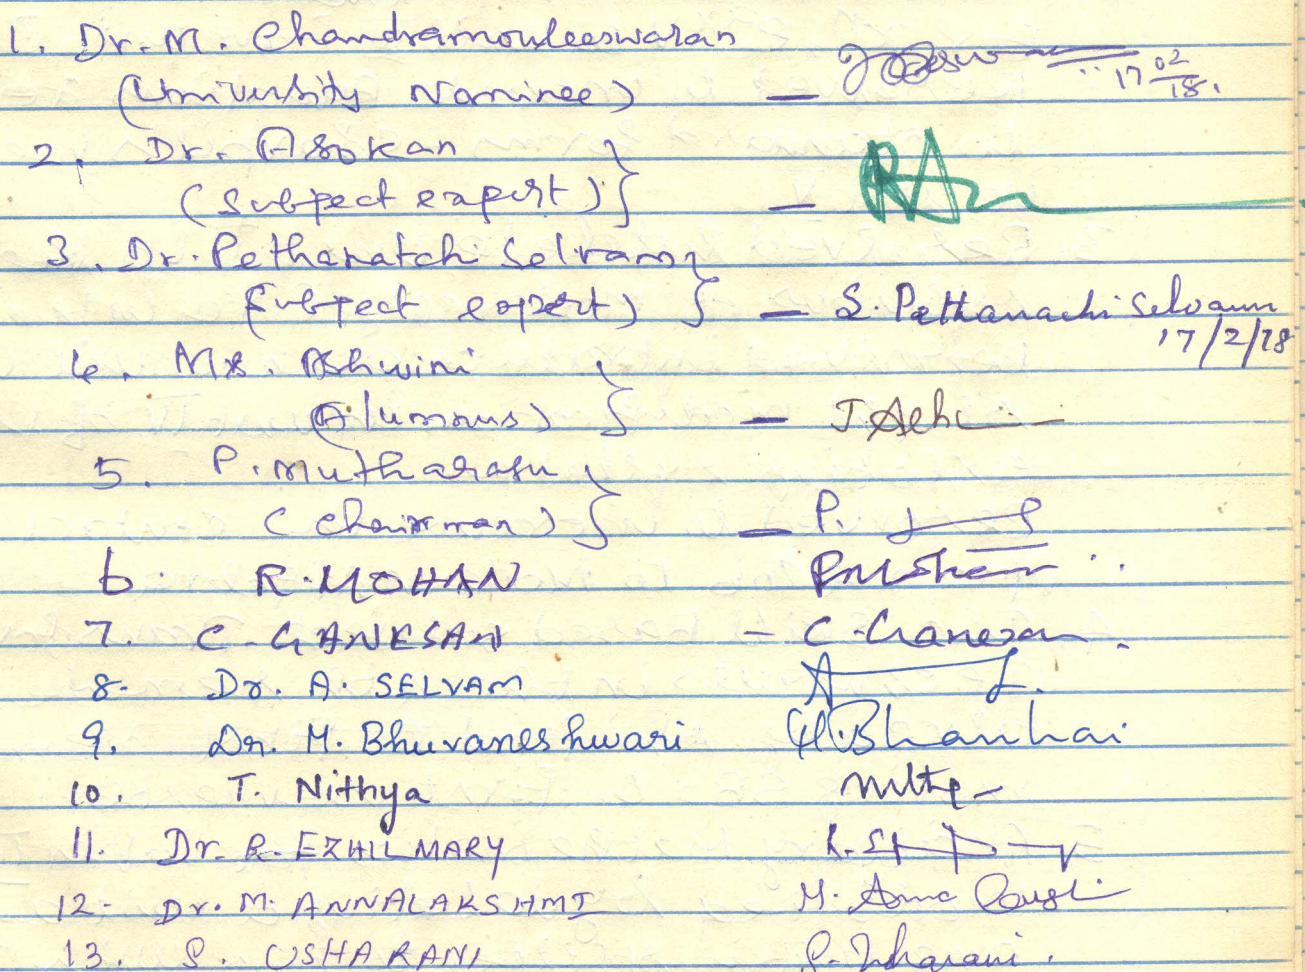 1. Dr. M. Chandramouleeswaran
(University Nominee) — 17/02/18.
2. Dr. Asokan
(Subject expert) } —
3. Dr. Pethanatchi Selvam
(Subject expert) } — S. Pethanachi Selvam
17/2/18
4. Ms. Ashwini
(Alumnus) } —
5. P. Mutharasu
(Chairman) } — P.
6. R. MOHAN
7. C. GANESAN — C. Ganesan
8. Dr. A. SELVAM
9. Dr. M. Bhuvaneshwari
10. T. Nithya
11. Dr. R. EZHILMARY
12. Dr. M. ANNALAKSHMI
13. S. USHARANI